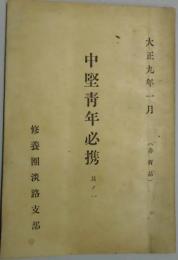 大正九年一月
(非賣品)
中堅青年必携
其ノ一
修養團淡路支部